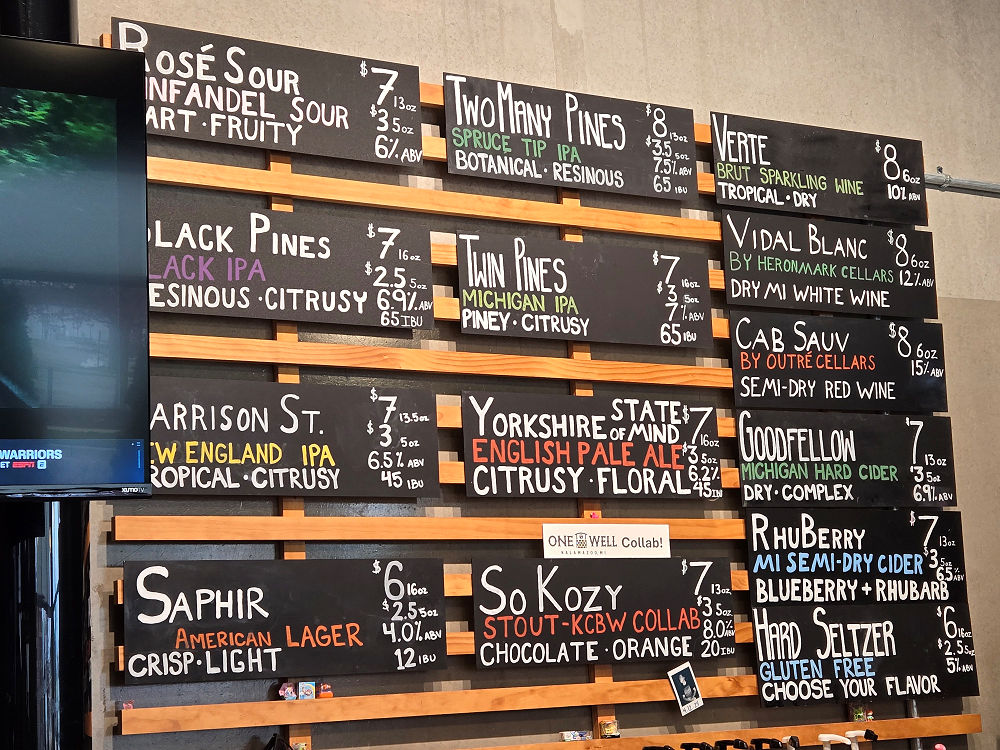 ROSÉ SOUR
INFANDEL SOUR
ART · FRUITY
$7 13oz
$3 5oz
6% ABV
TWO MANY PINES
SPRUCE TIP IPA
BOTANICAL · RESINOUS
$8 13oz
$3.5 5oz
7.5% ABV
65 IBU
VERTE
BRUT SPARKLING WINE
TROPICAL · DRY
$8 6oz
10% ABV
LACK PINES
LACK IPA
ESINOUS · CITRUSY
$7 16oz
$2.5 5oz
6.9% ABV
65 IBU
TWIN PINES
MICHIGAN IPA
PINEY · CITRUSY
$7 16oz
$3 5oz
7% ABV
65 IBU
VIDAL BLANC
BY HERONMARK CELLARS
DRY MI WHITE WINE
$8 6oz
12% ABV
CAB SAUV
BY OUTRÉ CELLARS
SEMI-DRY RED WINE
$8 6oz
15% ABV
ARRISON ST.
EW ENGLAND IPA
ROPICAL · CITRUSY
$7 13.5oz
$3 5oz
6.5% ABV
45 IBU
YORKSHIRE STATE OF MIND
ENGLISH PALE ALE
CITRUSY · FLORAL
$7 16oz
$3.5 5oz
6.2%
45
GOODFELLOW
MICHIGAN HARD CIDER
DRY · COMPLEX
$7 13oz
$3 5oz
6.9% ABV
RHUBERRY
MI SEMI-DRY CIDER
BLUEBERRY + RHUBARB
$7 13oz
$3.5 5oz
6.5% ABV
SAPHIR
AMERICAN LAGER
CRISP · LIGHT
$6 16oz
$2.5 5oz
4.0% ABV
12 IBU
ONE WELL Collab!
KALAMAZOO, MI
SO KOZY
STOUT-KCBW COLLAB
CHOCOLATE · ORANGE
$7 13oz
$3.5 5oz
8.0%
20 IBU
HARD SELTZER
GLUTEN FREE
CHOOSE YOUR FLAVOR
$6 16oz
$2.5 5oz
5% ABV
WARRIORS
ET ESPN
XUMO TV